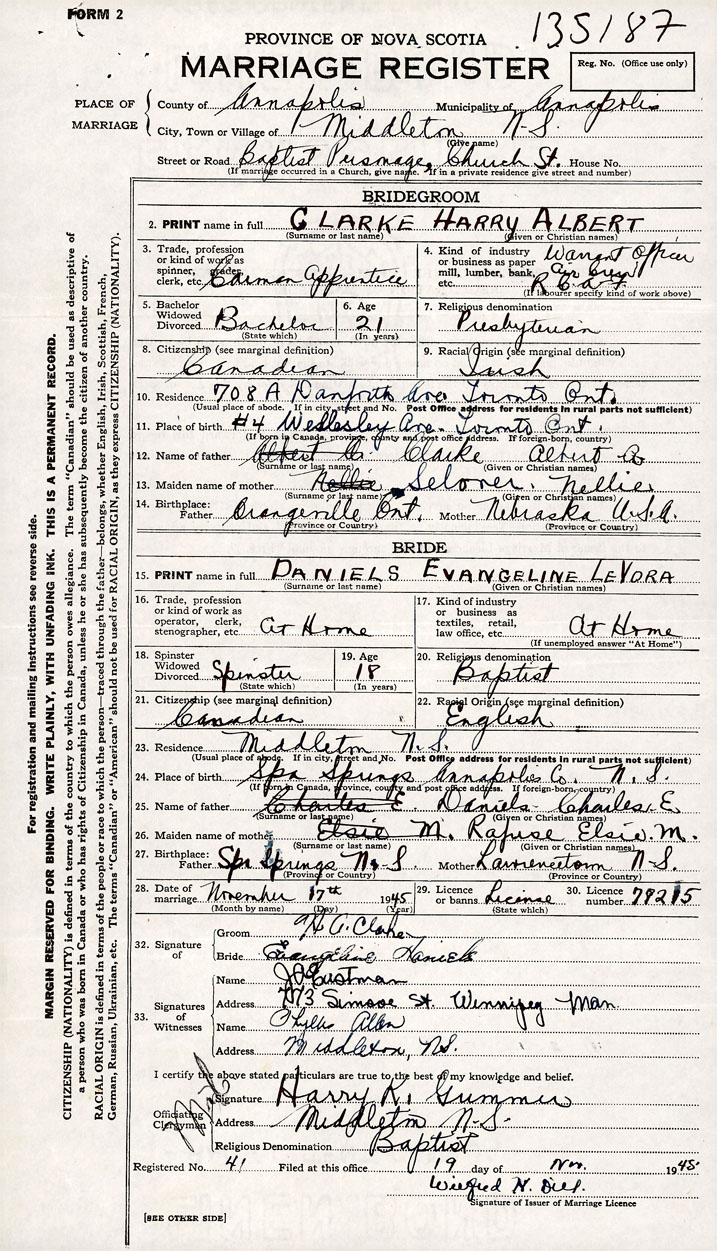 FORM 2
135187
PROVINCE OF NOVA SCOTIA
MARRIAGE REGISTER
Reg. No. (Office use only)
PLACE OF MARRIAGE
County of Annapolis Municipality of Annapolis
City, Town or Village of Middleton N-S.
(Give name)
Street or Road Baptist Church St. House No.
(If marriage occurred in a Church, give name. If in a private residence give street and number)
BRIDEGROOM
2. PRINT name in full CLARKE HARRY ALBERT
(Surname or last name) (Given or Christian names)
3. Trade, profession or kind of work as spinner, grader, clerk, etc. Carman Apprentice
4. Kind of industry or business as paper mill, lumber, bank, etc. Warrant Officer Air Crew R.C.A.F.
(If labourer specify kind of work above)
5. Bachelor Widowed Divorced Bachelor
(State which)
6. Age 21
(In years)
7. Religious denomination Presbyterian
8. Citizenship (see marginal definition) Canadian
9. Racial Origin (see marginal definition) Irish
10. Residence 708A Danforth Ave Toronto Ont.
(Usual place of abode. If in city, street and No. Post Office address for residents in rural parts not sufficient)
11. Place of birth #4 Wellesley Ave. Toronto Ont.
(If born in Canada, province, county and post office address. If foreign-born, country)
12. Name of father Albert C. Clarke Albert
(Surname or last name) (Given or Christian names)
13. Maiden name of mother Nellie Selover. Nellie
(Surname or last name) (Given or Christian names)
14. Birthplace: Father Orangeville Ont. Mother Nebraska U.S.A.
(Province or Country) (Province or Country)
BRIDE
15. PRINT name in full DANIELS EVANGELINE LEVORA
(Surname or last name) (Given or Christian names)
16. Trade, profession or kind of work as operator, clerk, stenographer, etc. At Home
17. Kind of industry or business as textiles, retail, law office, etc. At Home
(If unemployed answer "At Home")
18. Spinster Widowed Divorced Spinster
(State which)
19. Age 18
(In years)
20. Religious denomination Baptist
21. Citizenship (see marginal definition) Canadian
22. Racial Origin (see marginal definition) English
23. Residence Middleton N.S.
(Usual place of abode. If in city, street and No. Post Office address for residents in rural parts not sufficient)
24. Place of birth Spa Springs Annapolis Co. N.S.
(If born in Canada, province, county and post office address. If foreign-born, country)
25. Name of father Charles E. Daniels Charles. E
(Surname or last name) (Given or Christian names)
26. Maiden name of mother Elsie M. Rafuse Elsie. M.
(Surname or last name) (Given or Christian names)
27. Birthplace: Father Spa Springs N-S. Mother Lawrencetown N-S.
(Province or Country) (Province or Country)
28. Date of marriage November 17th 1945
(Month by name) (Day) (Year)
29. Licence or banns License
(State which)
30. Licence number 79215
32. Signature of
Groom H. A. Clarke
Bride Evangeline Daniels
33. Signatures of Witnesses
Name Eastman
Address 773 Simcoe St. Winnipeg Man.
Name Phyllis Allen
Address Middleton, NS.
I certify the above stated particulars are true to the best of my knowledge and belief.
Officiating Clergyman
Signature Harry K. Gummer
Address Middleton N-S-
Religious Denomination Baptist
Registered No. 41 Filed at this office 19 day of Nov. 1945
Wilfred H.
Signature of Issuer of Marriage Licence
[SEE OTHER SIDE]
For registration and mailing instructions see reverse side.
MARGIN RESERVED FOR BINDING. WRITE PLAINLY, WITH UNFADING INK. THIS IS A PERMANENT RECORD.
CITIZENSHIP (NATIONALITY) is defined in terms of the country to which the person owes allegiance. The term "Canadian" should be used as descriptive of
a person who was born in Canada or who has rights of Citizenship in Canada, unless he or she has subsequently become the citizen of another country.
RACIAL ORIGIN is defined in terms of the people or race to which the person—traced through the father—belongs, whether English, Irish, Scottish, French,
German, Russian, Ukrainian, etc. The terms "Canadian" or "American" should not be used for RACIAL ORIGIN, as they express CITIZENSHIP (NATIONALITY).